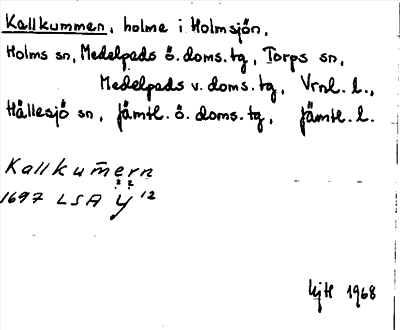 Kallkummen, holme i Holmsjön,
Holms sn, Medelpads ö. doms. tg, Torps sn,
Medelpads v. doms. tg, Vrnl. l.,
Hällesjö sn, Jämtl. ö. doms. tg, Jämtl. l.
Kallkum̄ern
1697 LSA Y 12
1968